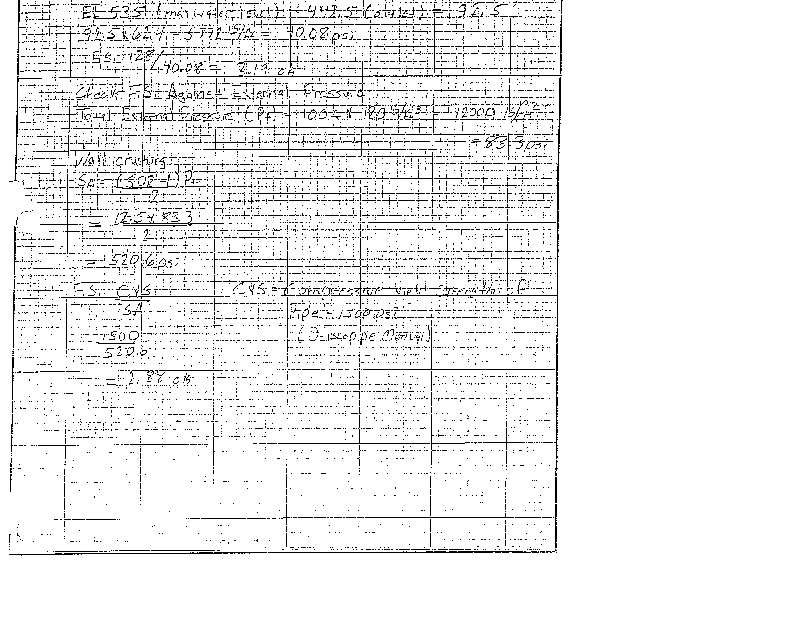 El 535 (max water level) - 442.5 (outlet) = 92.5'
92.5 x 62.4 = 5772 #/ft² = 40.08 psi
FS = /40.08 = ok
Check FS Against External Pressure
Total External Pressure (Pt) = 100' x 120 #/ft³ = 12000 #/ft²
= 83.3 psi
Wall crushing
SA = (SDR - 1) Pt
2
= 12.5 x 83.3
2
= 520.6 psi
FS = CYS
SA
CYS = Compressive Yield Strength of
Pipe = 1500 psi
1500
520.6
(Driscopipe Manual)
= 2.88 ok